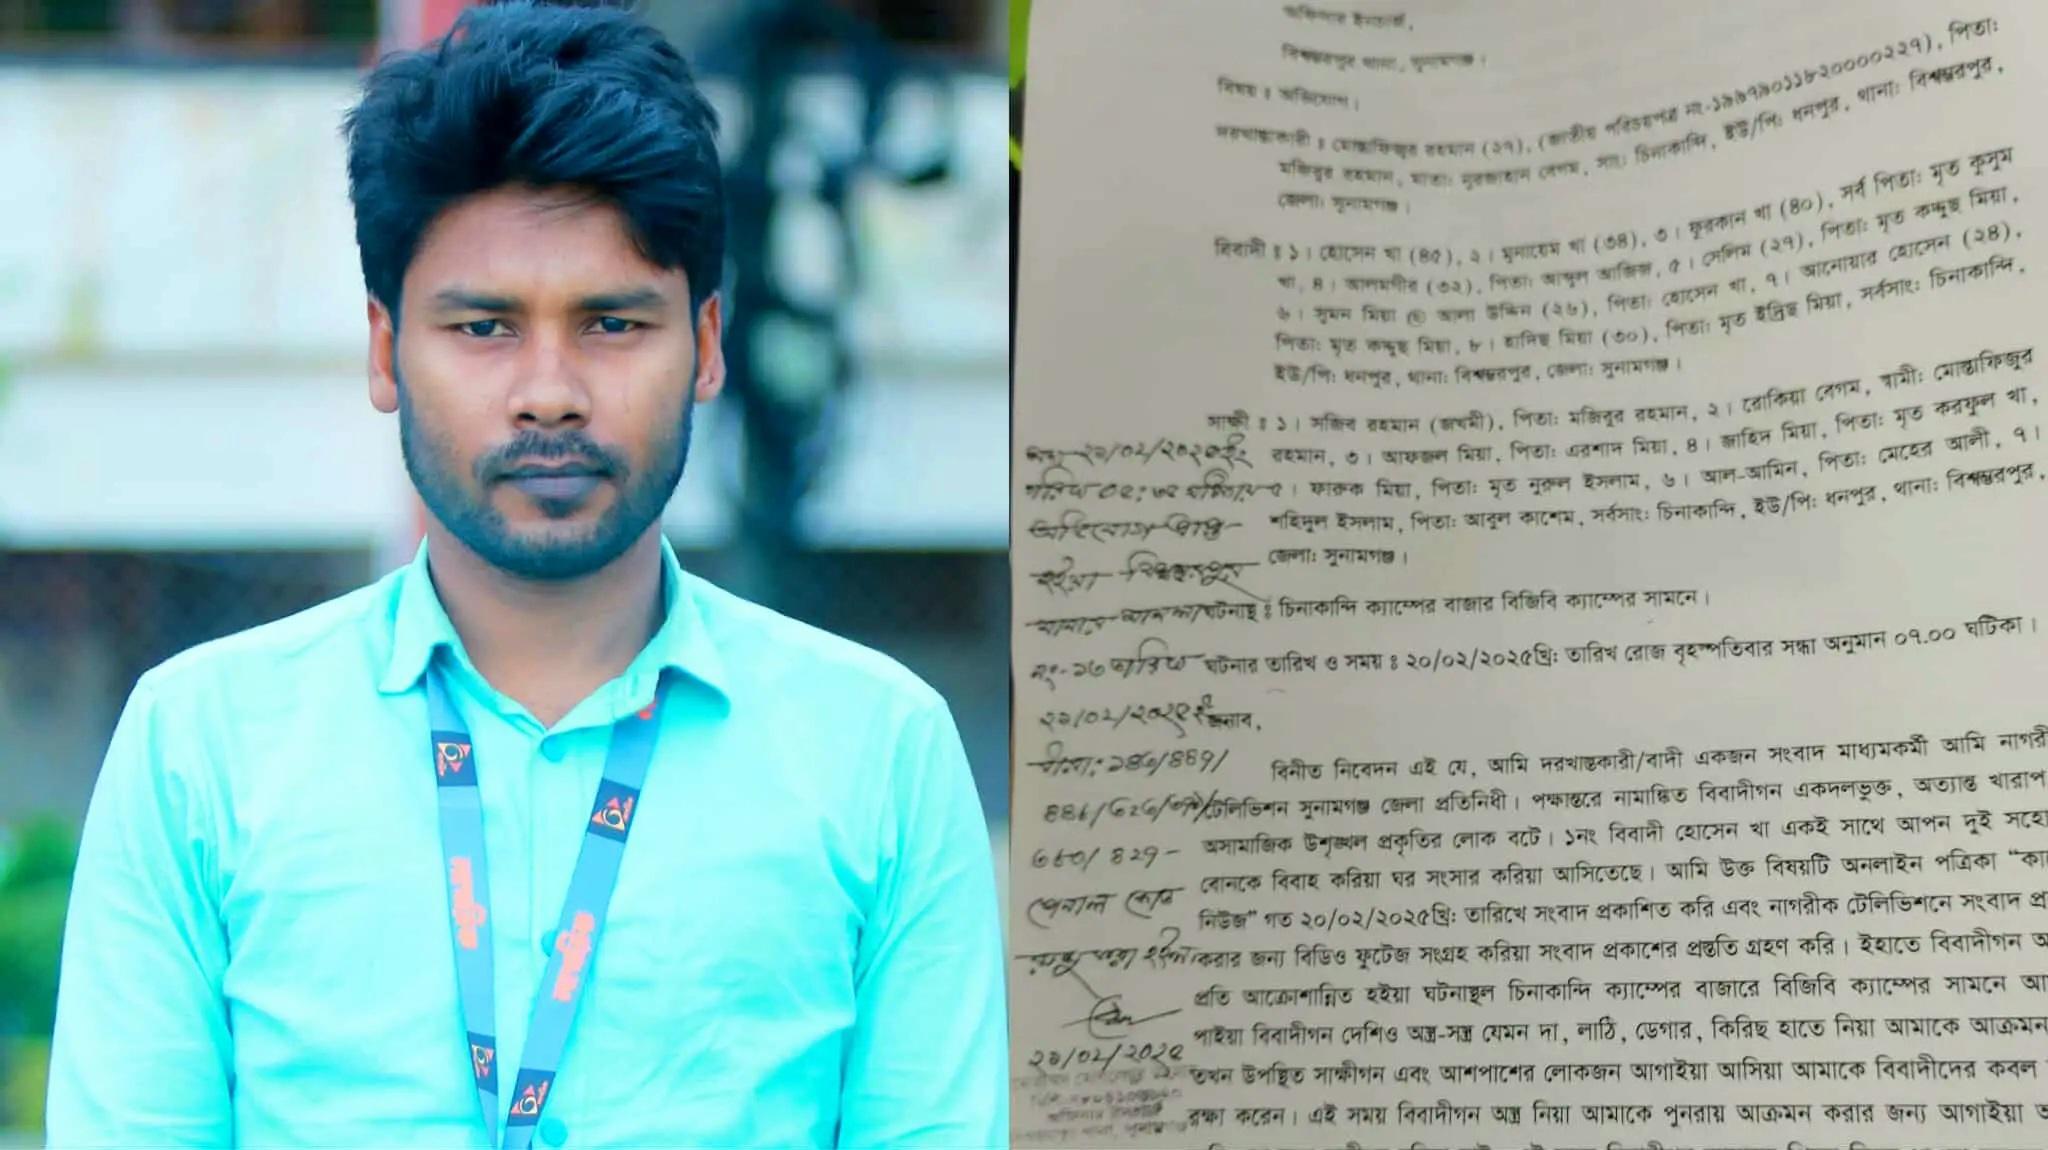 অফিসার ইনচার্জ,
বিশ্বম্ভরপুর থানা, সুনামগঞ্জ।
বিষয় ঃ অভিযোগ।
দরখাস্তকারী ঃ মোস্তাফিজুর রহমান (২৭), (জাতীয় পরিচয়পত্র নং-), পিতাঃ
মজিবুর রহমান, মাতাঃ নুরজাহান বেগম, সাং চিনাকান্দি, ইউ/পিঃ ধনপুর, থানাঃ বিশ্বম্ভরপুর,
জেলাঃ সুনামগঞ্জ।
বিবাদী ঃ ১। হোসেন খা (৪৫), ২। মুনায়েম খা (৩৪), ৩। ফুরকান খা (৪০), সর্ব পিতাঃ মৃত কুসুম
খা, ৪। আলমগীর (৩২), পিতাঃ আব্দুল আজিজ, ৫। সেলিম (২৭), পিতাঃ মৃত কদ্দুছ মিয়া,
৬। সুমন মিয়া আলা উদ্দিন (২৬), পিতাঃ হোসেন খা, ৭। আনোয়ার হোসেন (২৪),
পিতাঃ মৃত কদ্দুছ মিয়া, ৮। হাদিছ মিয়া (৩০), পিতাঃ মৃত ইদ্রিছ মিয়া, সর্বসাং চিনাকান্দি,
ইউ/পিঃ ধনপুর, থানাঃ বিশ্বম্ভরপুর, জেলাঃ সুনামগঞ্জ।
সাক্ষী ঃ ১। সজিব রহমান (জখমী), পিতাঃ মজিবুর রহমান, ২। রোকিয়া বেগম, স্বামীঃ মোস্তাফিজুর
রহমান, ৩। আফজল মিয়া, পিতাঃ এরশাদ মিয়া, ৪। জাহিদ মিয়া, পিতাঃ মৃত করফুল খা,
৫। ফারুক মিয়া, পিতাঃ মৃত নুরুল ইসলাম, ৬। আল-আমিন, পিতাঃ মেহের আলী, ৭।
শহিদুল ইসলাম, পিতাঃ আবুল কাশেম, সর্বসাং চিনাকান্দি, ইউ/পিঃ ধনপুর, থানাঃ বিশ্বম্ভরপুর,
জেলাঃ সুনামগঞ্জ।
ঘটনাস্থ ঃ চিনাকান্দি ক্যাম্পের বাজার বিজিবি ক্যাম্পের সামনে।
ঘটনার তারিখ ও সময় ঃ ২০/০২/২০২৫খ্রিঃ তারিখ রোজ বৃহস্পতিবার সন্ধা অনুমান ০৭.০০ ঘটিকা।
জনাব,
বিনীত নিবেদন এই যে, আমি দরখাস্তকারী/বাদী একজন সংবাদ মাধ্যমকর্মী আমি নাগরী
টেলিভিশন সুনামগঞ্জ জেলা প্রতিনিধী। পক্ষান্তরে নামাঙ্কিত বিবাদীগন একদলভুক্ত, অত্যান্ত খারাপ
অসামাজিক উশৃঙ্খল প্রকৃতির লোক বটে। ১নং বিবাদী হোসেন খা একই সাথে আপন দুই সহো
বোনকে বিবাহ করিয়া ঘর সংসার করিয়া আসিতেছে। আমি উক্ত বিষয়টি অনলাইন পত্রিকা "কা
নিউজ" গত ২০/০২/২০২৫খ্রিঃ তারিখে সংবাদ প্রকাশিত করি এবং নাগরীক টেলিভিশনে সংবাদ প্র
করার জন্য বিডিও ফুটেজ সংগ্রহ করিয়া সংবাদ প্রকাশের প্রস্ততি গ্রহণ করি। ইহাতে বিবাদীগন আ
প্রতি আক্রোশান্নিত হইয়া ঘটনাস্থল চিনাকান্দি ক্যাম্পের বাজারে বিজিবি ক্যাম্পের সামনে আ
পাইয়া বিবাদীগন দেশিও অস্ত্র-সস্ত্র যেমন দা, লাঠি, ডেগার, কিরিছ হাতে নিয়া আমাকে আক্রমন
তখন উপস্থিত সাক্ষীগন এবং আশপাশের লোকজন আগাইয়া আসিয়া আমাকে বিবাদীদের কবল
রক্ষা করেন। এই সময় বিবাদীগন অস্ত্র নিয়া আমাকে পুনরায় আক্রমন করার জন্য আগাইয়া
অভিযোগ প্রাপ্ত
হইয়া বিশ্বম্ভরপুর
তারিখ
২১/০২/২০২৫
ধারা: ১৪৩/৪৪৭/
পেনাল কোড
রুজু করা হইল
২১/০২/২০২৫
নাগরিক
নাগরিক